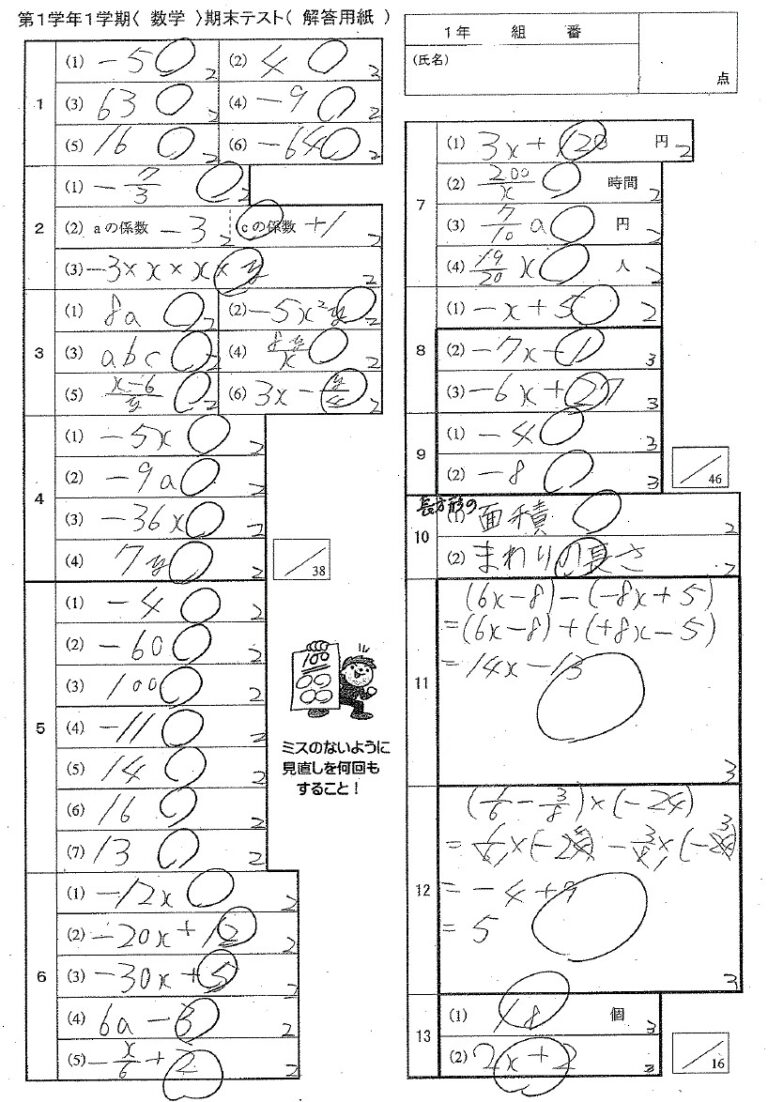 第1学年1学期〈 数学 〉期末テスト( 解答用紙 )
1年 組 番
(氏名)
点
1
(1) -5 2
(2) 4 2
(3) 63 2
(4) -9 2
(5) 16 2
(6) -64 2
2
(1) -7/3 2
(2) aの係数 -3 2 cの係数 +1 2
(3) -3×x×x×y 2
3
(1) 8a 2
(2) -5x²y 2
(3) abc 2
(4) 8y/x 2
(5) x-6/y 2
(6) 3x-y/4 2
4
(1) -5x 2
(2) -9a 2
(3) -36x 2
(4) 7y 2
/38
5
(1) -4 2
(2) -60 2
(3) 100 2
(4) -11 2
(5) 14 2
(6) 16 2
(7) 13 2
100
ミスのないように
見直しを何回も
すること!
6
(1) -12x 2
(2) -20x+12 2
(3) -30x+5 2
(4) 6a-3 2
(5) -x/6+2 2
7
(1) 3x+120 円 2
(2) 200/x 時間 2
(3) 7/10 a 円 2
(4) 19/20 x 人 2
8
(1) -x+5 2
(2) -7x-1 3
(3) -6x+27 3
9
(1) -4 3
(2) -8 3
/46
10
長方形の
(1) 面積 2
(2) まわりの長さ 2
11
(6x-8)-(-8x+5)
=(6x-8)+(+8x-5)
=14x-13
3
12
(1/6-3/8)×(-24)
=1/6×(-24)-3/8×(-24)
=-4+9
=5
3
13
(1) 18 個 3
(2) 2x+2 3
/16